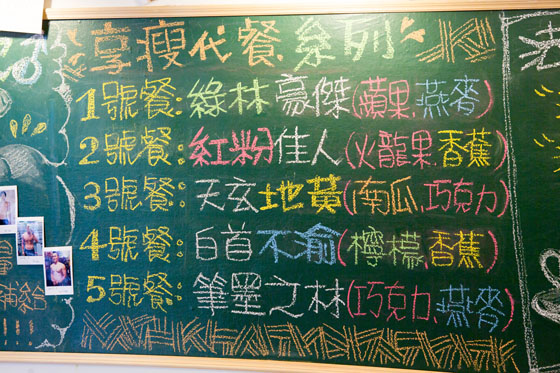 享瘦代餐系列
1號餐:綠林豪傑(蘋果.燕麥)
2號餐:紅粉佳人(火龍果.香蕉)
3號餐:天玄地黃(南瓜.巧克力)
4號餐:白首不渝(檸檬.香蕉)
5號餐:筆墨之林(巧克力.燕麥)
量
補給
!!!!